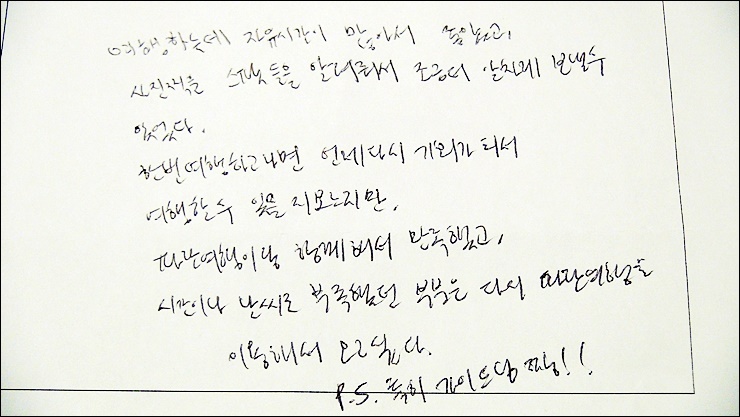 여행하는데 자유시간이 많아서 좋았고,
사진찍을 스팟들을 알려줘서 조금더 알차게 보낼수
있었다.
한번여행하고나면 언제다시 기회가 되서
여행할수 있을 지모르지만,
파란여행이랑 함께해서 만족했고,
시간이나 날씨로 부족했던 부분은 다시 파란여행을
이용해서 오고싶다.
P.S. 특히 가이드님 짱!!